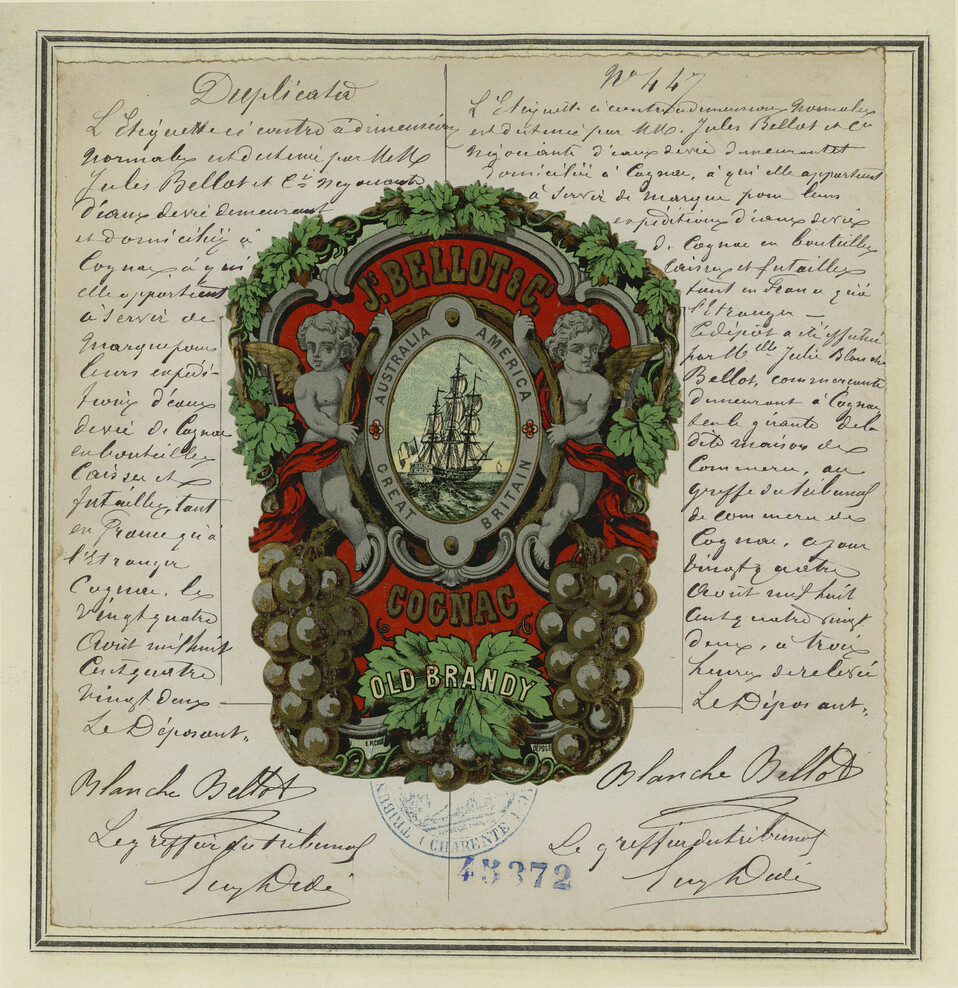 Duplicata
L'Etiquette ci contre à dimensions
normales est destinée par MM
Jules Bellot et Cie Négociants
d'eaux de vie demeurant
et domiciliés à
Cognac à qui
elle appartient
à servir de
marque pour
leurs expédi-
tions d'eaux
de vie de Cognac
en bouteilles
Caisses et
futailles, tant
en France qu'à
l'Etranger
Cognac, le
vingt quatre
Août mil huit
Cent quatre
vingt deux
Le Déposant,,
Blanche Bellot
Le greffier du tribunal
No 447
L'Etiquette ci contre à dimensions Normales
est destinée par MM. Jules Bellot et Cie
négociants d'eaux de vie demeurant et
domiciliés à Cognac, à qui elle appartient
à servir de marque pour leurs
expéditions d'eaux de vie
de Cognac en bouteilles
caisses et futailles
tant en France qu'à
l'Etranger —
Ce dépôt a été effectué
par Melle Julie Blanche
Bellot, commerçante
demeurant à Cognac
seule gérante de la
dite maison de
Commerce, au
greffe du tribunal
de commerce de
Cognac, ce jour
vingt quatre
Août mil huit
cent quatre vingt
deux, à trois
heures de relevée
Le Déposant,,
Blanche Bellot
Le greffier du tribunal
Js. BELLOT & Co.
AUSTRALIA AMERICA
GREAT BRITAIN
COGNAC
OLD BRANDY
DÉPOSÉ
TRIBUN
CHARENTE
45372